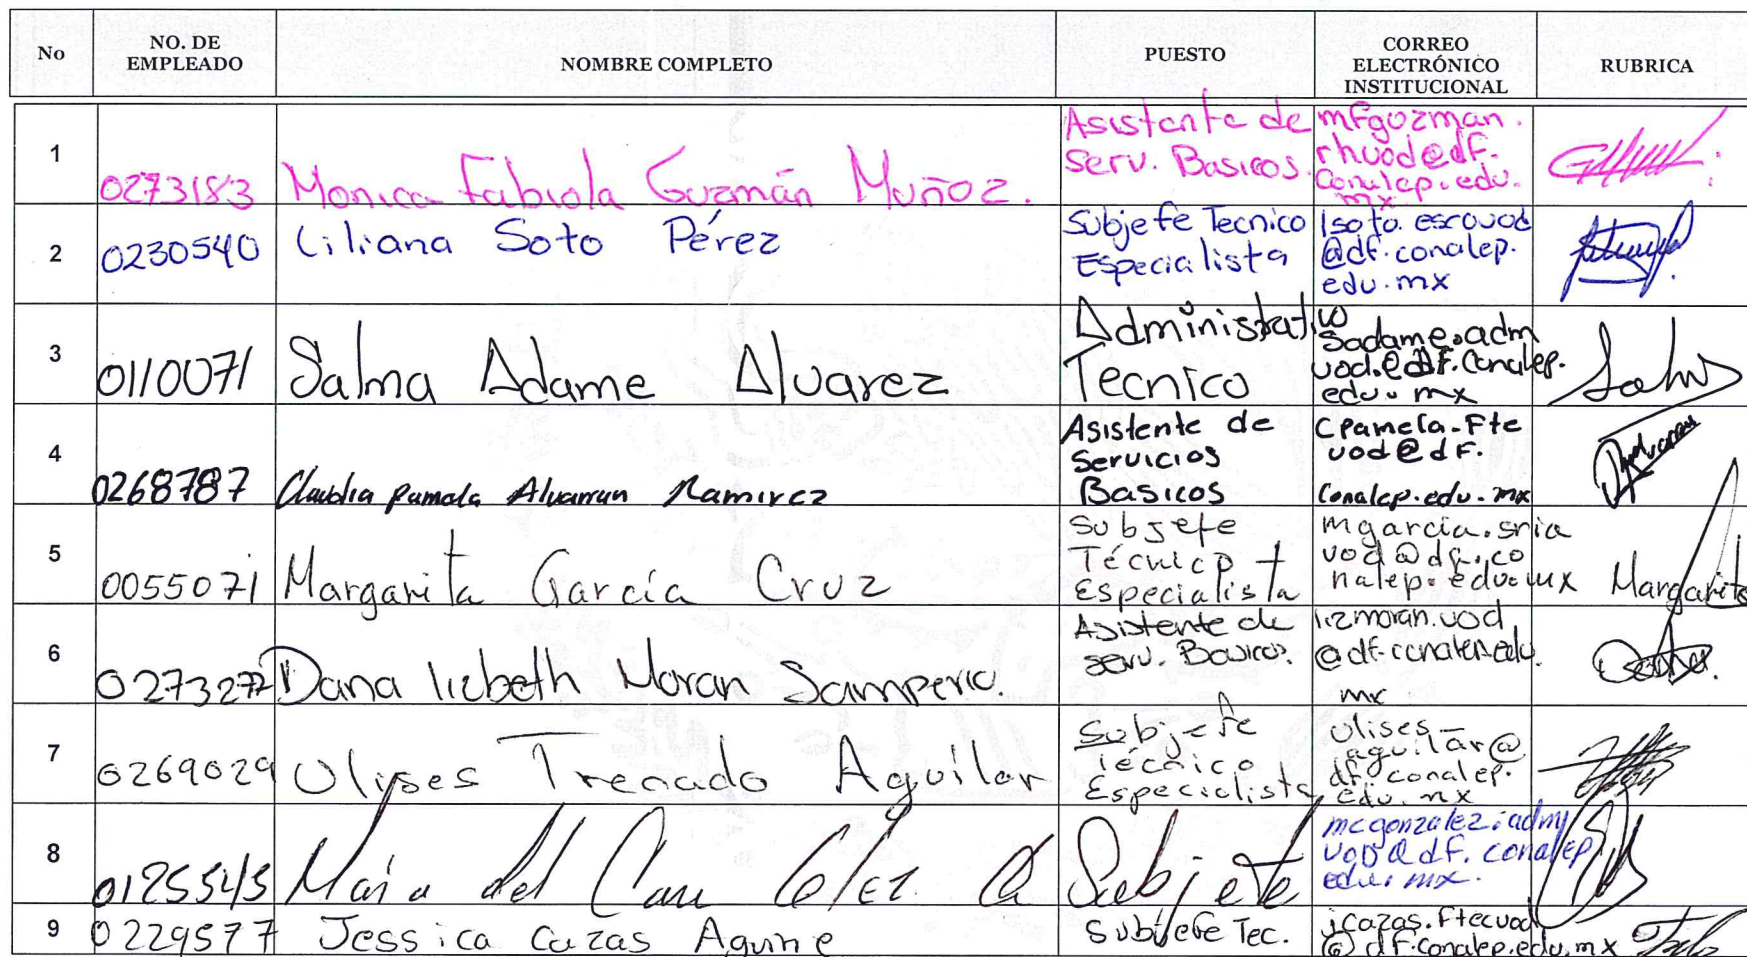 No NO. DE EMPLEADO NOMBRE COMPLETO PUESTO CORREO ELECTRÓNICO INSTITUCIONAL RUBRICA
1 0273183 Monica Fabiola Guzmán Muñoz. Asistente de
Serv. Basicos. mfguzman.
rhuod@df.
Conalep.edu.
mx
2 0230540 Liliana Soto Pérez Subjefe Tecnico
Especialista lsoto.escouod
@df.conalep.
edu.mx
3 0110071 Salma Adame Alvarez Administrativo
Tecnico Sadame.adm
uod.@df.Conalep.
edu.mx
4 0268787 Claudia Pamela Ramirez Asistente de
Servicios
Basicos Cpamela.Fte
uod@df.
Conalep.edu.mx
5 0055071 Margarita García Cruz Subjefe
Técnico
Especialista mgarcia.sria
uod@df.co
nalep.edu.mx Margarita
6 0273277 Dana lizbeth Moran Samperio. Asistente de
serv. Basicos. lizmoran.uod
@df.conalep.edu.
mx
7 0269029 Ulises Trenado Aguilar Subjefe
Técnico
Especialista Ulises_
aguilar@
df.conalep.
edu.mx
8 María del Subjefe mcgonzalez.adm
UOD@df.conalep
edu.mx.
9 0229577 Jessica Cazas Aguirre Subjefe Tec. jcazas.ftecuod
@df.conalep.edu.mx